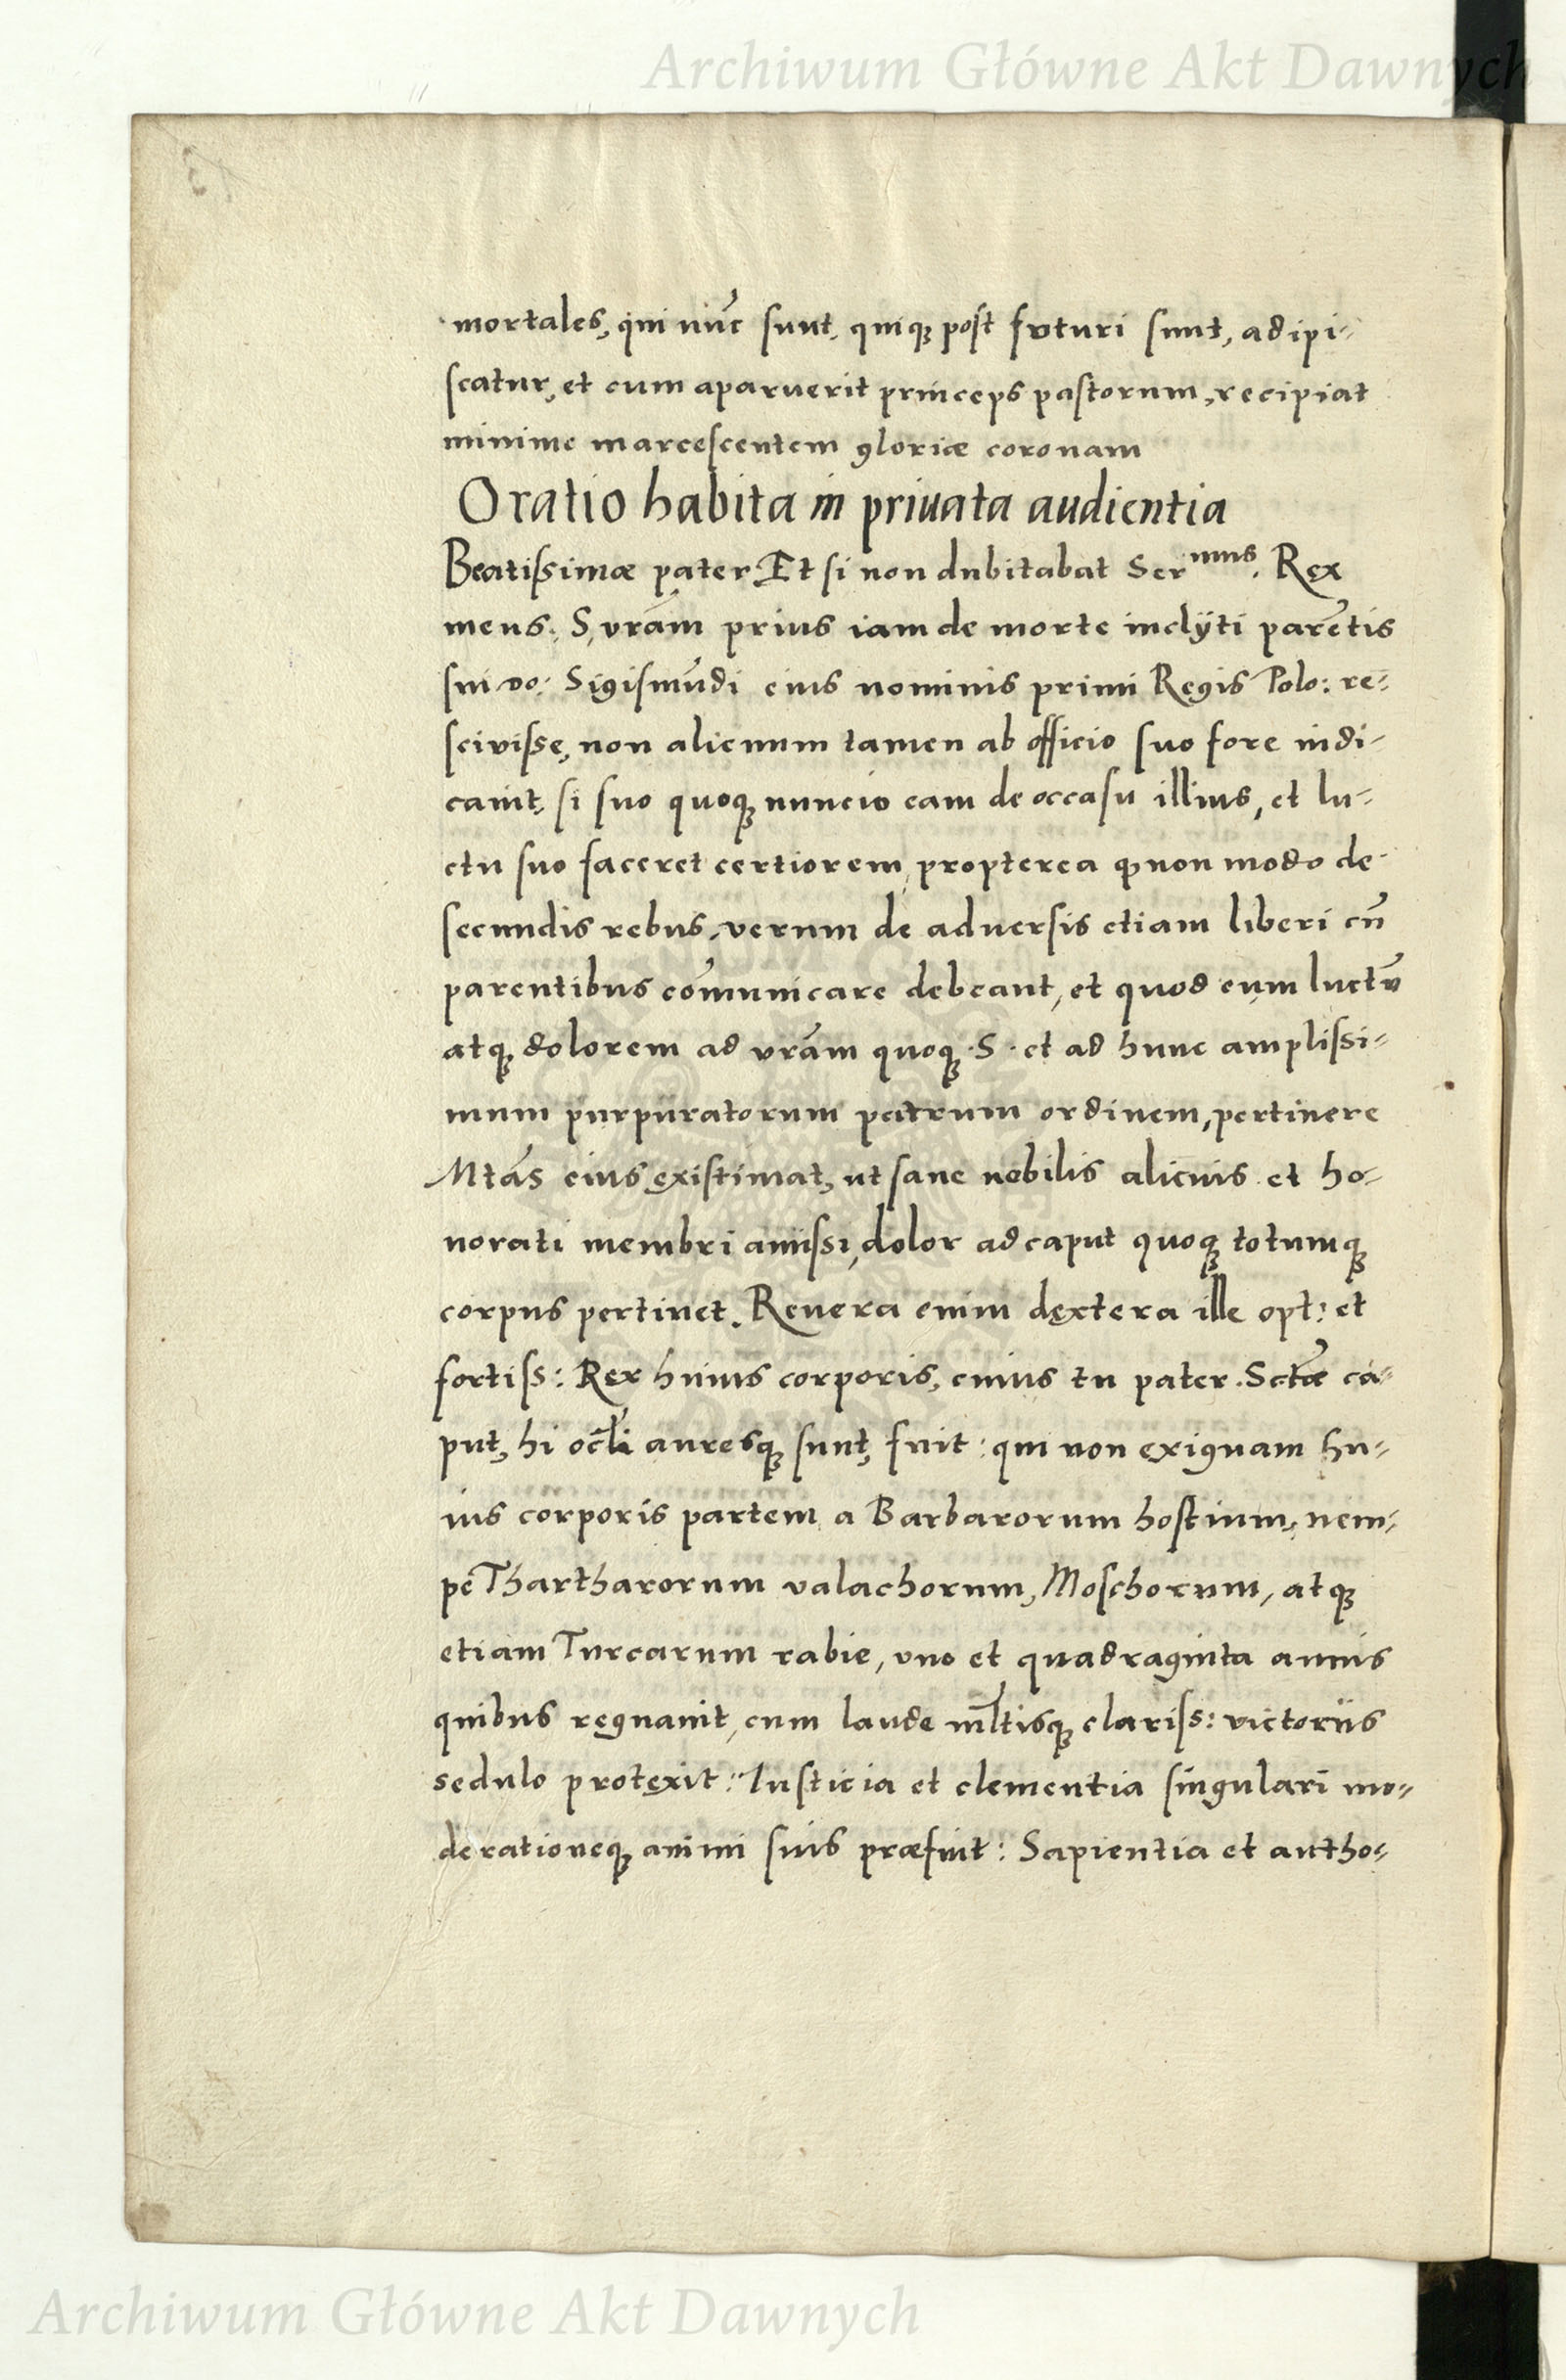 Archiwum Główne Akt Dawnych
mortales, qui nūc sunt, quiq; post futuri sunt, adipi-
scatur, et cum aparuerit princeps pastorum, recipiat
minime marcescentem gloriæ coronam
Oratio habita in priuata audientia
Beatissimæ pater. Et si non dubitabat Ser^mus. Rex
meus. S. vrām prius iam de morte inclÿti parētis
sui do: Sigismūdi eius nominis primi Regis Polo: re-
scivisse, non alienum tamen ab officio suo fore iudi-
cauit, si suo quoq; nuncio eam de occasu illius, et lu-
ctu suo faceret certiorem, propterea ꝙ non modo de
secundis rebus, verum de aduersis etiam liberi cū
parentibus cōmunicare debeant, et quod eum luctū
atq; dolorem ad vrām quoq; S. et ad hunc amplissi-
mum purpuratorum patrum ordinem, pertinere
Mtās eius existimat, ut sane nobilis alicuis et ho-
norati membri amissi, dolor ad caput quoq; totumq;
corpus pertinet. Reuera enim dextera ille opt: et
fortiss: Rex huius corporis, cuius tu pater Sctæ ca-
put, hi ocli auresq; sunt, fuit: qui non exiguam hu-
ius corporis partem a Barbarorum hostium, nem-
pe Thartharorum valachorum, Moschorum, atq;
etiam Turcarum rabie, vno et quadraginta annis
quibus regnauit, cum laude mltisq; clariss: victoriis
sedulo protexit: Iusticia et clementia singulari mo-
derationeq; animi suis præfuit: Sapientia et autho-
Archiwum Główne Akt Dawnych